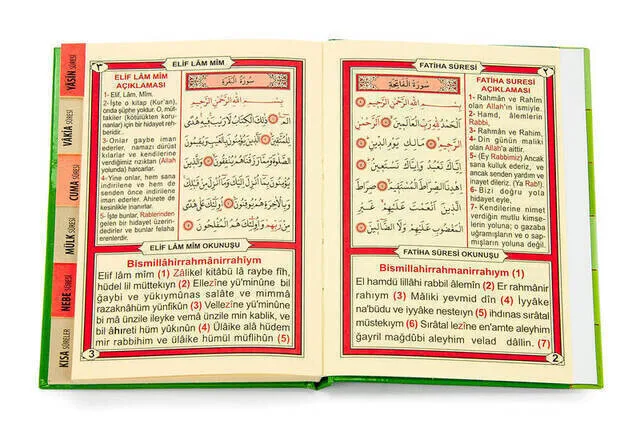 FATİHA SURESİ
٢
FATİHA SURESİ
AÇIKLAMASI
1- Rahmân ve Rahîm
olan Allah'ın ismiyle.
2- Hamd, âlemlerin
Rabbi,
3- Rahmân ve Rahim,
4- Din günün maliki
olan Allah'a aittir.
5- (Ey Rabbimiz) Ancak
sana kulluk ederiz, ve
ancak senden yardım ve
inayet dileriz. (Ya Rab!).
6- Bizi doğru yola
hidayet eyle,
7- Kendilerine nimet
verdiğin mutlu kimse-
lerin yoluna; o gazaba
uğramışların ve o sap-
mışların yoluna değil.
سُورَةُ الْفَاتِحَةِ
بِسْمِ اللهِ الرَّحْمٰنِ الرَّحِيمِ
اَلْحَمْدُ لِلّٰهِ رَبِّ الْعَالَمِينَ اَلرَّحْمٰنِ
الرَّحِيمِ مَالِكِ يَوْمِ الدِّينِ
اِيَّاكَ نَعْبُدُ وَاِيَّاكَ نَسْتَعِينُ
اِهْدِنَا الصِّرَاطَ الْمُسْتَقِيمَ صِرَاطَ
الَّذِينَ اَنْعَمْتَ عَلَيْهِمْ غَيْرِ
الْمَغْضُوبِ عَلَيْهِمْ وَلَا الضَّالِّينَ
FATİHA SURESİ OKUNUŞU
Bismillâhirrahmanirrahıym (1)
El hamdü lillâhi rabbil âlemîn (2) Er rahmânir
rahıym (3) Mâliki yevmid dîn (4) İyyâke
na'büdu ve iyyâke nesteıyn (5) ihdınas sırâtal
müstekıym (6) Sırâtal lezîne en'amte aleyhim
ğayril mağdûbi aleyhim velad dâllin. (7)
2
ELİF LÂM MÎM
٣
ELİF LÂM MÎM
AÇIKLAMASI
1- Elif, Lâm, Mîm.
2-İşte o kitap (Kur'an),
onda şüphe yoktur. O, müt-
takiler (kötülükten korun-
anlar) için bir hidayet reh-
beridir.
3-Onlar gaybe iman
ederler, namazı dürüst
kılarlar ve kendilerine
verdiğimiz rızıktan (Allah
yolunda) harcarlar.
4-Yine onlar, hem sana
indirilene ve hem de
senden önce indirilene
iman ederler. Ahirete de
kesinlikle inanırlar.
5-İşte bunlar, Rablerinden
gelen bir hidayet üzerin-
dedirler ve bunlar felaha
erenlerdir.
سُورَةُ الْبَقَرَةِ
بِسْمِ اللهِ الرَّحْمٰنِ الرَّحِيمِ
الٓمٓ ذٰلِكَ الْكِتَابُ لَا رَيْبَ فِيهِ هُدًى
لِلْمُتَّقِينَ اَلَّذِينَ يُؤْمِنُونَ بِالْغَيْبِ وَيُقِيمُونَ
الصَّلٰوةَ وَمِمَّا رَزَقْنَاهُمْ يُنْفِقُونَ وَالَّذِينَ
يُؤْمِنُونَ بِمَا اُنْزِلَ اِلَيْكَ وَمَا اُنْزِلَ مِنْ قَبْلِكَ
وَبِالْاٰخِرَةِ هُمْ يُوقِنُونَ اُولٰئِكَ عَلٰى هُدًى
مِنْ رَبِّهِمْ وَاُولٰئِكَ هُمُ الْمُفْلِحُونَ
ELİF LÂM MÎM OKUNUŞU
Bismillâhirrahmânirrahiym
Elif lâm mîm (1) Zâlikel kitâbü lâ raybe fîh,
hüdel lil müttekıyn (2) Ellezîne yü'minûne bil
ğaybi ve yükıymûnas salâte ve mimmâ
razaknâhüm yünfikûn (3) Vellezîne yü'minûne
bimâ ünzile ileyke vemâ ünzile min kablik, ve
bil âhıreti hüm yûkınûn (4) Ülâike alâ hüdem
mir rabbihim ve ülâike hümül müflihûn (5)
3
YÂSİN SÛRESİ
VÂKIA SÛRESİ
CUMA SÛRESİ
MÜLK SÛRESİ
NEBE SÛRESİ
KISA SÛRELER